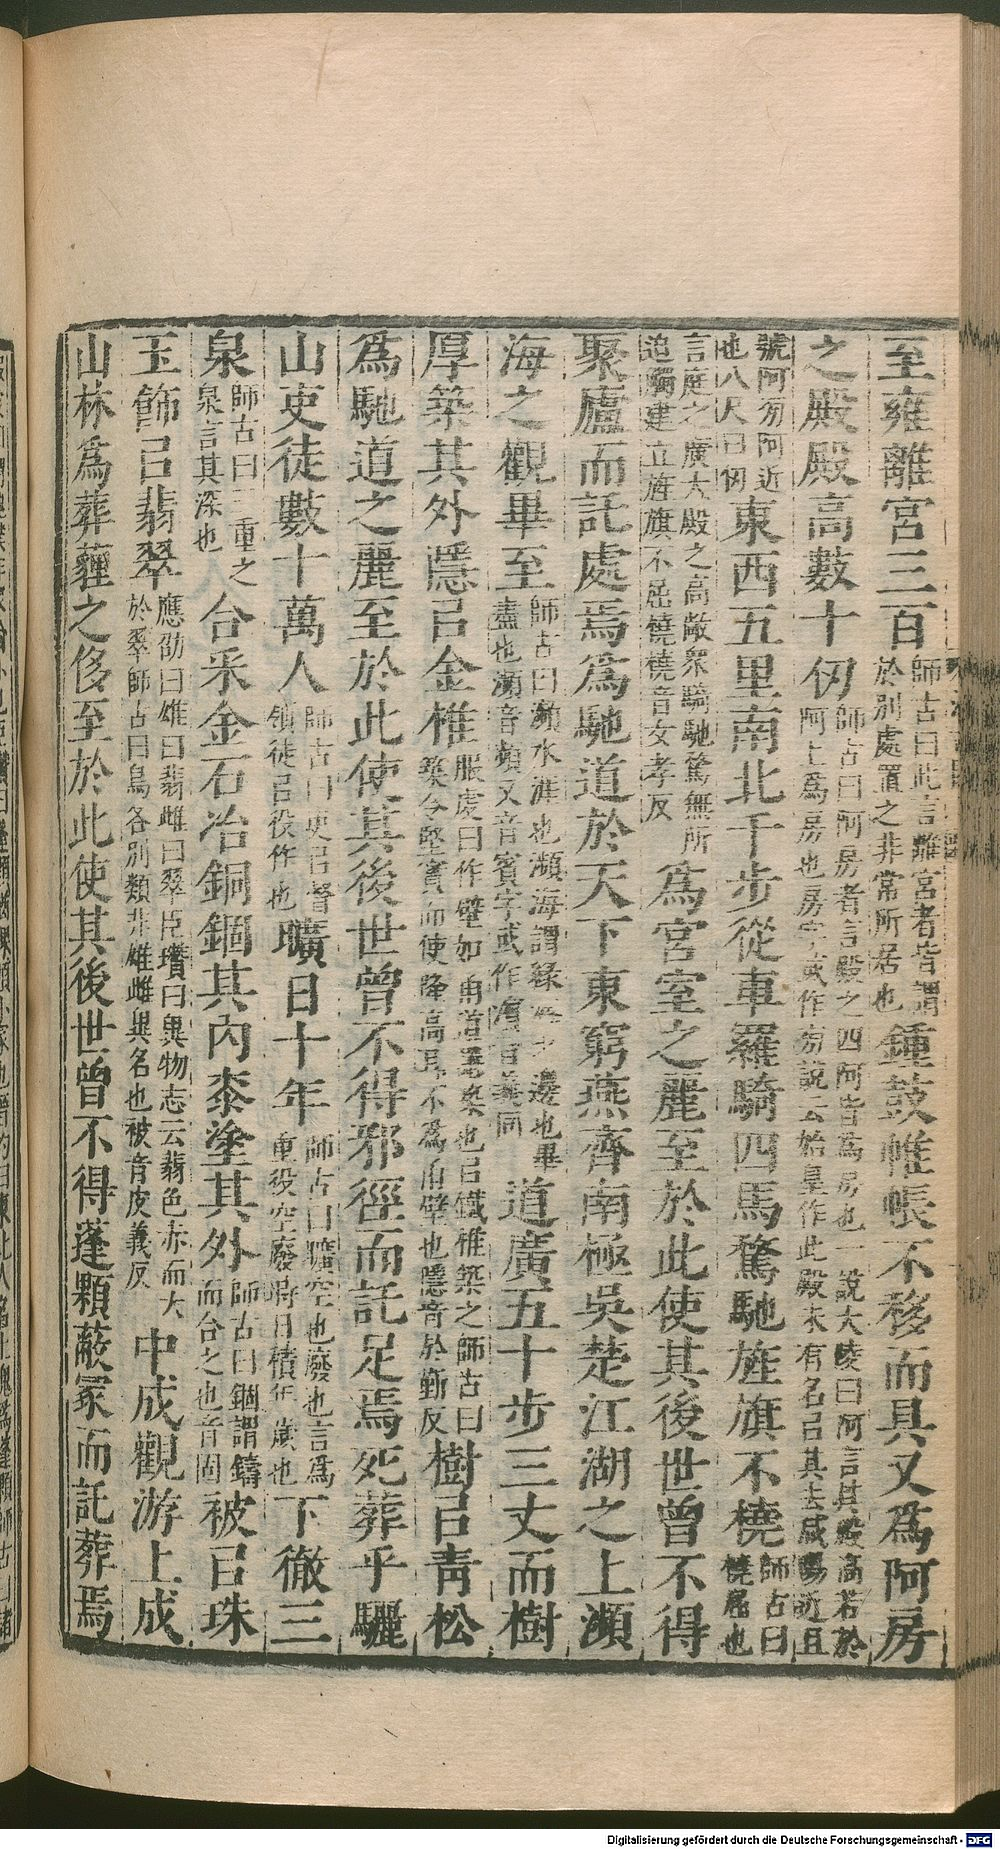 至雍離宮三百師古曰此言離宮者皆謂於別處置之非常所居也鍾鼓帷帳不移而具又爲阿房
之殿殿高數十仞師古曰阿房者言殿之四阿皆爲房也一說大陵曰阿言其殿高若於阿上爲房也房字或作旁說云始皇作此殿未有名以其去咸陽近且
號阿旁阿近也八尺曰仞東西五里南北千步從車羅騎四馬騖馳旌旗不橈師古曰橈屈也
言庭之廣大殿之高敞衆騎馳騖無所迫觸建立旌旗不屈橈橈音女孝反爲宮室之麗至於此使其後世曾不得
聚廬而託處焉爲馳道於天下東窮燕齊南極吳楚江湖之上瀕
海之觀畢至師古曰瀕水涯也瀕海謂緣海之邊也畢盡也瀕音頻又音賓字或作濱音義同道廣五十步三丈而樹
厚築其外隱㠯金椎服虔曰作壁如甬道隱築也㠯鐵椎築之師古曰築令堅實而使隆高耳不爲甬壁也隱音於靳反樹㠯青松
爲馳道之麗至於此使其後世曾不得邪徑而託足焉死葬乎驪
山吏徒數十萬人師古曰吏㠯督領徒㠯役作也曠日十年師古曰曠空也廢也言爲重役空廢時日積年歲也下徹三
泉師古曰三重之泉言其深也合采金石冶銅錮其內桼塗其外師古曰錮謂鑄而合之也音固被㠯珠
玉飾㠯翡翠應劭曰雄曰翡雌曰翠臣瓚曰異物志云翡色赤而大於翠師古曰鳥各別類非雄雌異名也被音皮義反中成觀游上成
山林爲葬薶之侈至於此使其後世曾不得蓬顆蔽冢而託葬焉
Digitalisierung gefördert durch die Deutsche Forschungsgemeinschaft - DFG